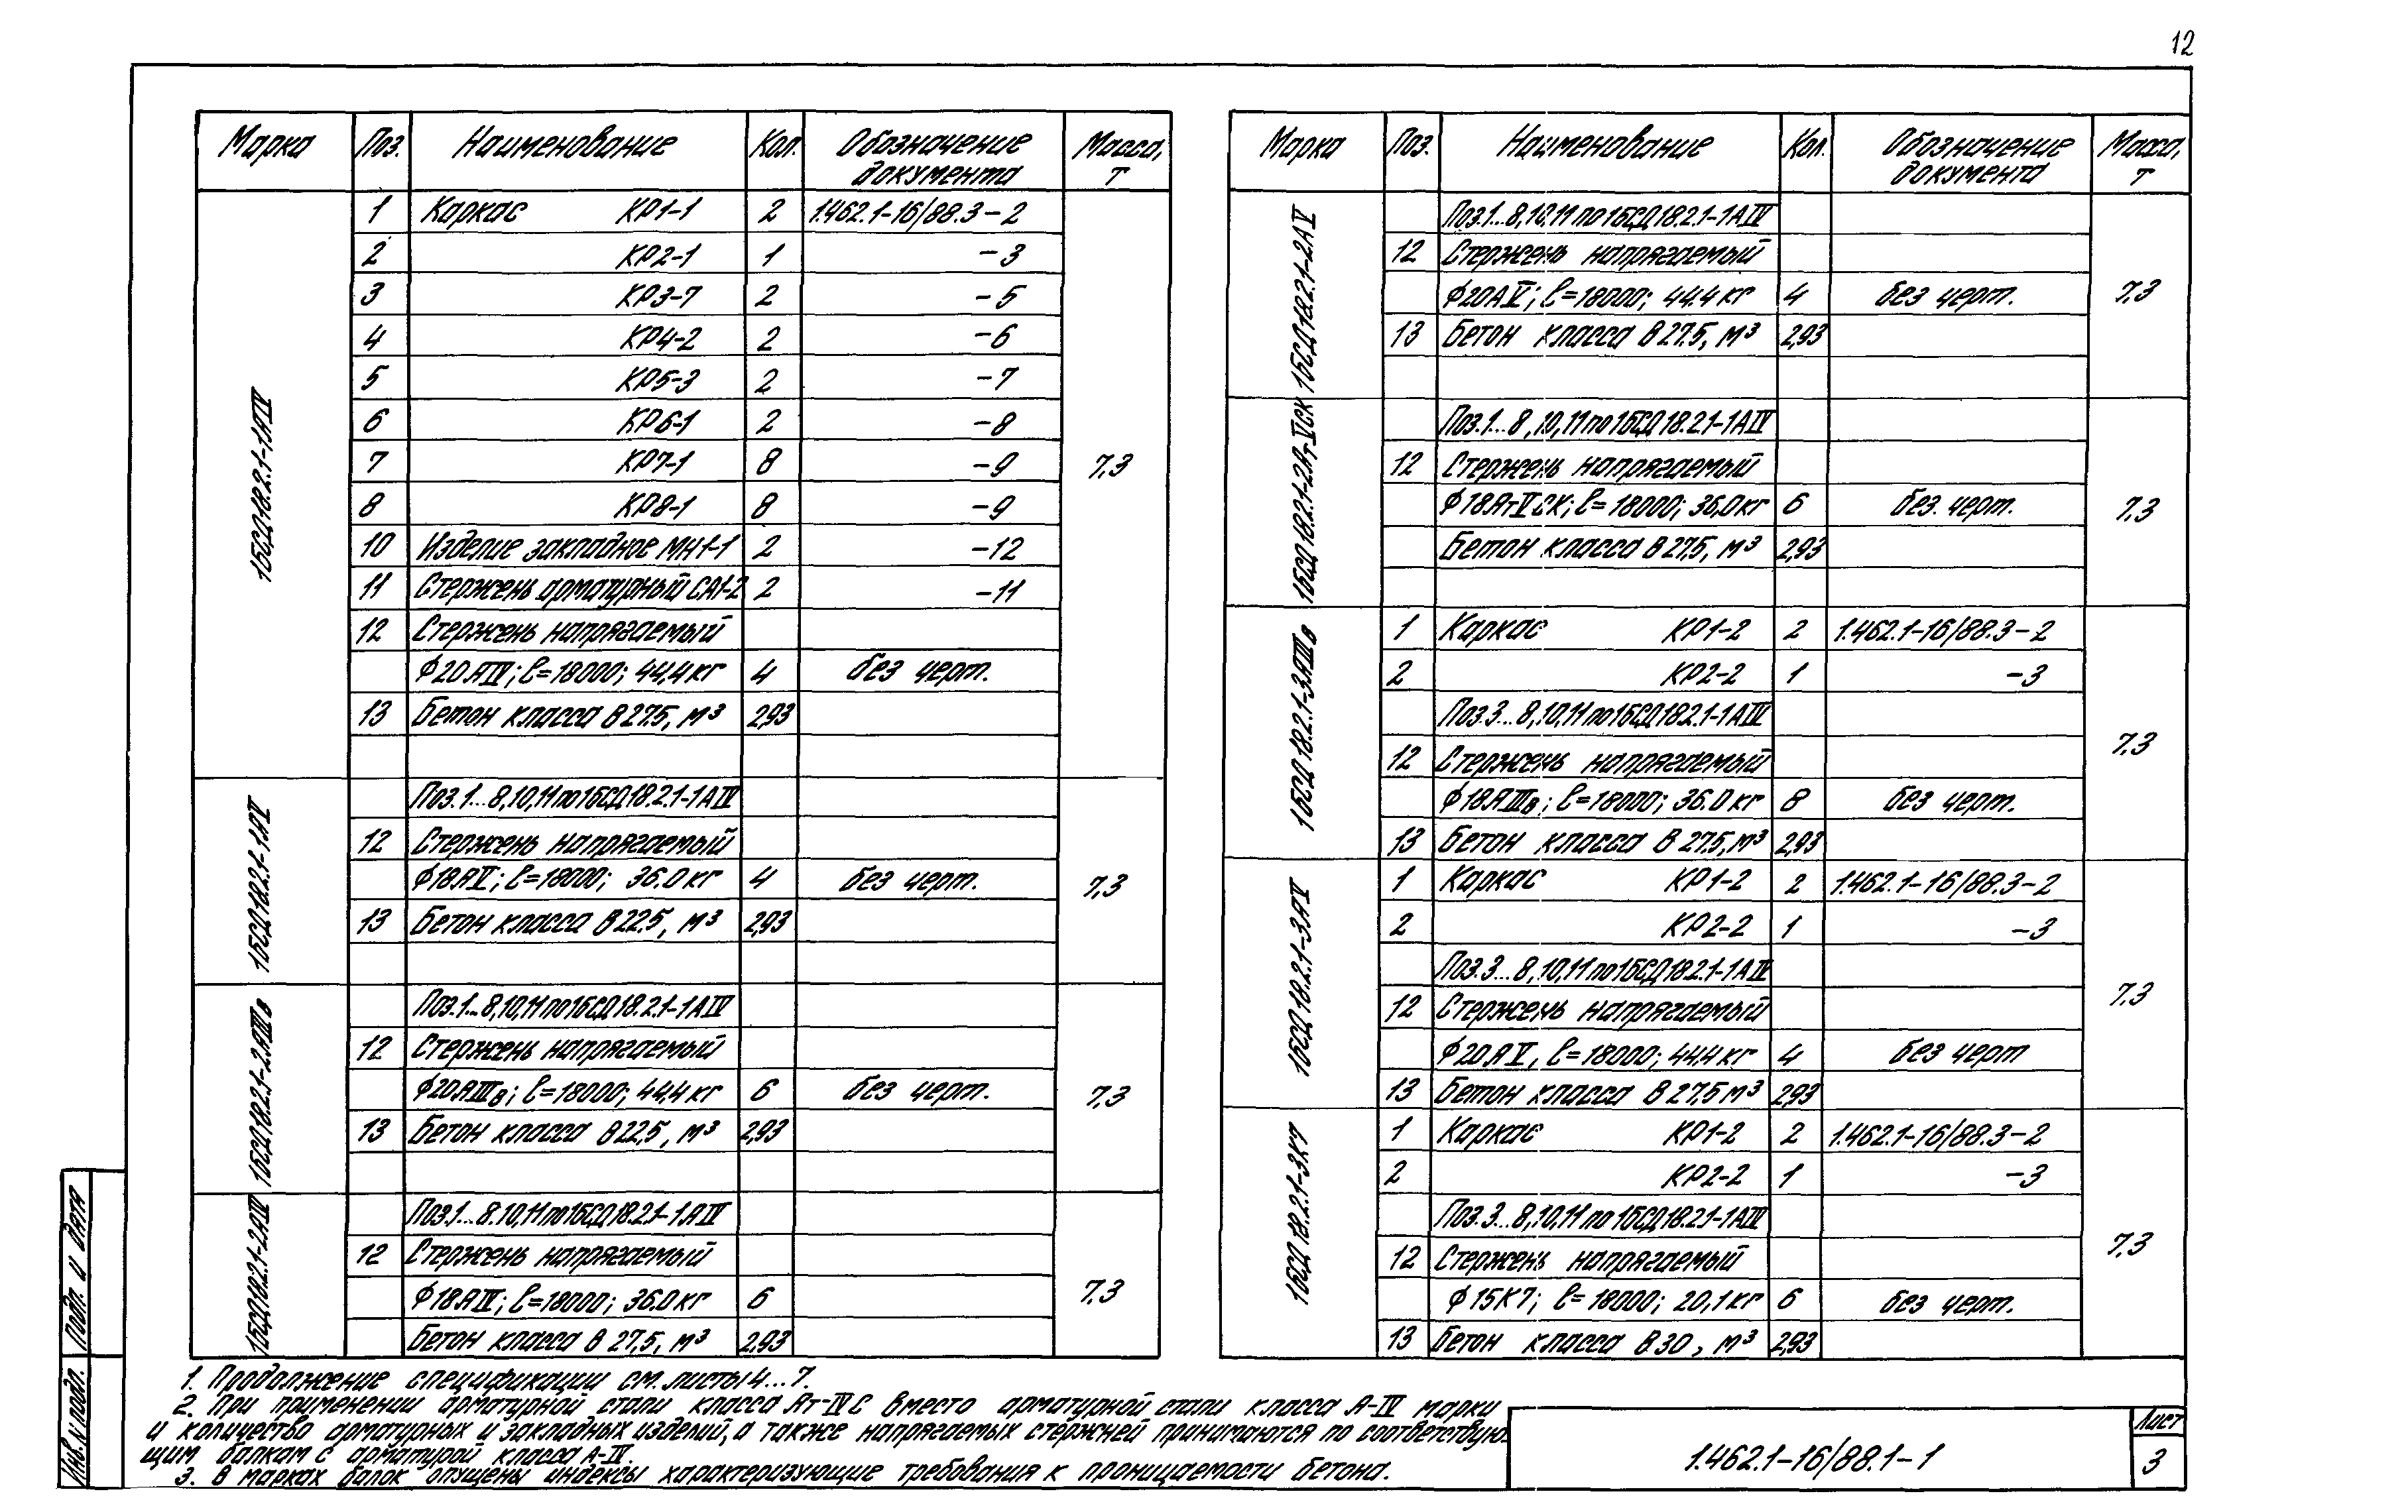 12
Марка Поз. Наименование Кол. Обозначение документа Масса, т
1БСД18.2.1-1АIV
1 Каркас КР1-1 2 1.462.1-16/88.3-2
2 КР2-1 1 -3
3 КР3-7 2 -5
4 КР4-2 2 -6
5 КР5-3 2 -7
6 КР6-1 2 -8
7 КР7-1 8 -9 7.3
8 КР8-1 8 -9
10 Изделие закладное МН1-1 2 -12
11 Стержень арматурный СА1-2 2 -11
12 Стержень напрягаемый
ф20АIV; ℓ=18000; 44,4кг 4 без черт.
13 Бетон класса В27.5, м³ 2,93
1БСД18.2.1-1АV
Поз.1...8,10,11 по 1БСД18.2.1-1АIV
12 Стержень напрягаемый
ф18АV; ℓ=18000; 36.0кг 4 без черт. 7,3
13 Бетон класса В22.5, м³ 2,93
1БСД18.2.1-2АIIIв
Поз.1...8,10,11 по 1БСД18.2.1-1АIV
12 Стержень напрягаемый
ф20АIIIв; ℓ=18000; 44,4кг 6 без черт. 7.3
13 Бетон класса В22,5, м³ 2,93
1БСД18.2.1-2АIV
Поз.1...8.10,11 по 1БСД18.2.1-1АIV
12 Стержень напрягаемый
ф18АIV; ℓ=18000; 36.0кг 6 7.3
Бетон класса В27,5, м³ 2,93
Марка Поз. Наименование Кол. Обозначение документа Масса, т
1БСД18.2.1-2АV
Поз.1...8,10,11 по 1БСД18.2.1-1АIV
12 Стержень напрягаемый
ф20АV; ℓ=18000; 44.4кг 4 без черт. 7,3
13 Бетон класса В27.5, м³ 2,93
1БСД18.2.1-2Ат-VСК
Поз.1...8,10,11 по 1БСД18.2.1-1АIV
12 Стержень напрягаемый
ф18Ат-VСК; ℓ=18000; 36,0кг 6 без. черт. 7.3
Бетон класса В27,5, м³ 2,93
1БСД18.2.1-3АIIIв
1 Каркас КР1-2 2 1.462.1-16/88.3-2
2 КР2-2 1 -3
Поз.3...8,10,11 по 1БСД18.2.1-1АIV
12 Стержень напрягаемый 7.3
ф18АIIIв; ℓ=18000; 36.0кг 8 без черт.
13 Бетон класса В27.5, м³ 2,93
1БСД18.2.1-3АV
1 Каркас КР1-2 2 1.462.1-16/88.3-2
2 КР2-2 1 -3
Поз.3...8,10,11 по 1БСД18.2.1-1АIV
12 Стержень напрягаемый 7.3
ф20АV, ℓ=18000; 44.4кг 4 без черт
13 Бетон класса В27,5м³ 2,93
1БСД18.2.1-3К7
1 Каркас КР1-2 2 1.462.1-16/88.3-2
2 КР2-2 1 -3
Поз.3...8,10,11 по 1БСД18.2.1-1АIV
12 Стержень напрягаемый 7.3
ф15К7; ℓ=18000; 20,1кг 6 без черт.
13 Бетон класса В30, м³ 2,93
1. Продолжение спецификации см. листы 4...7.
2. При применении арматурной стали класса Ат-IVС вместо арматурной стали класса А-IV марки
и количество арматурных и закладных изделий, а также напрягаемых стержней принимаются по соответствую-
щим балкам с арматурой класса А-IV.
3. В марках балок опущены индексы характеризующие требования к проницаемости бетона.
1.462.1-16/88.1-1
Лист
3
Инв.N подл.
Подп. и дата